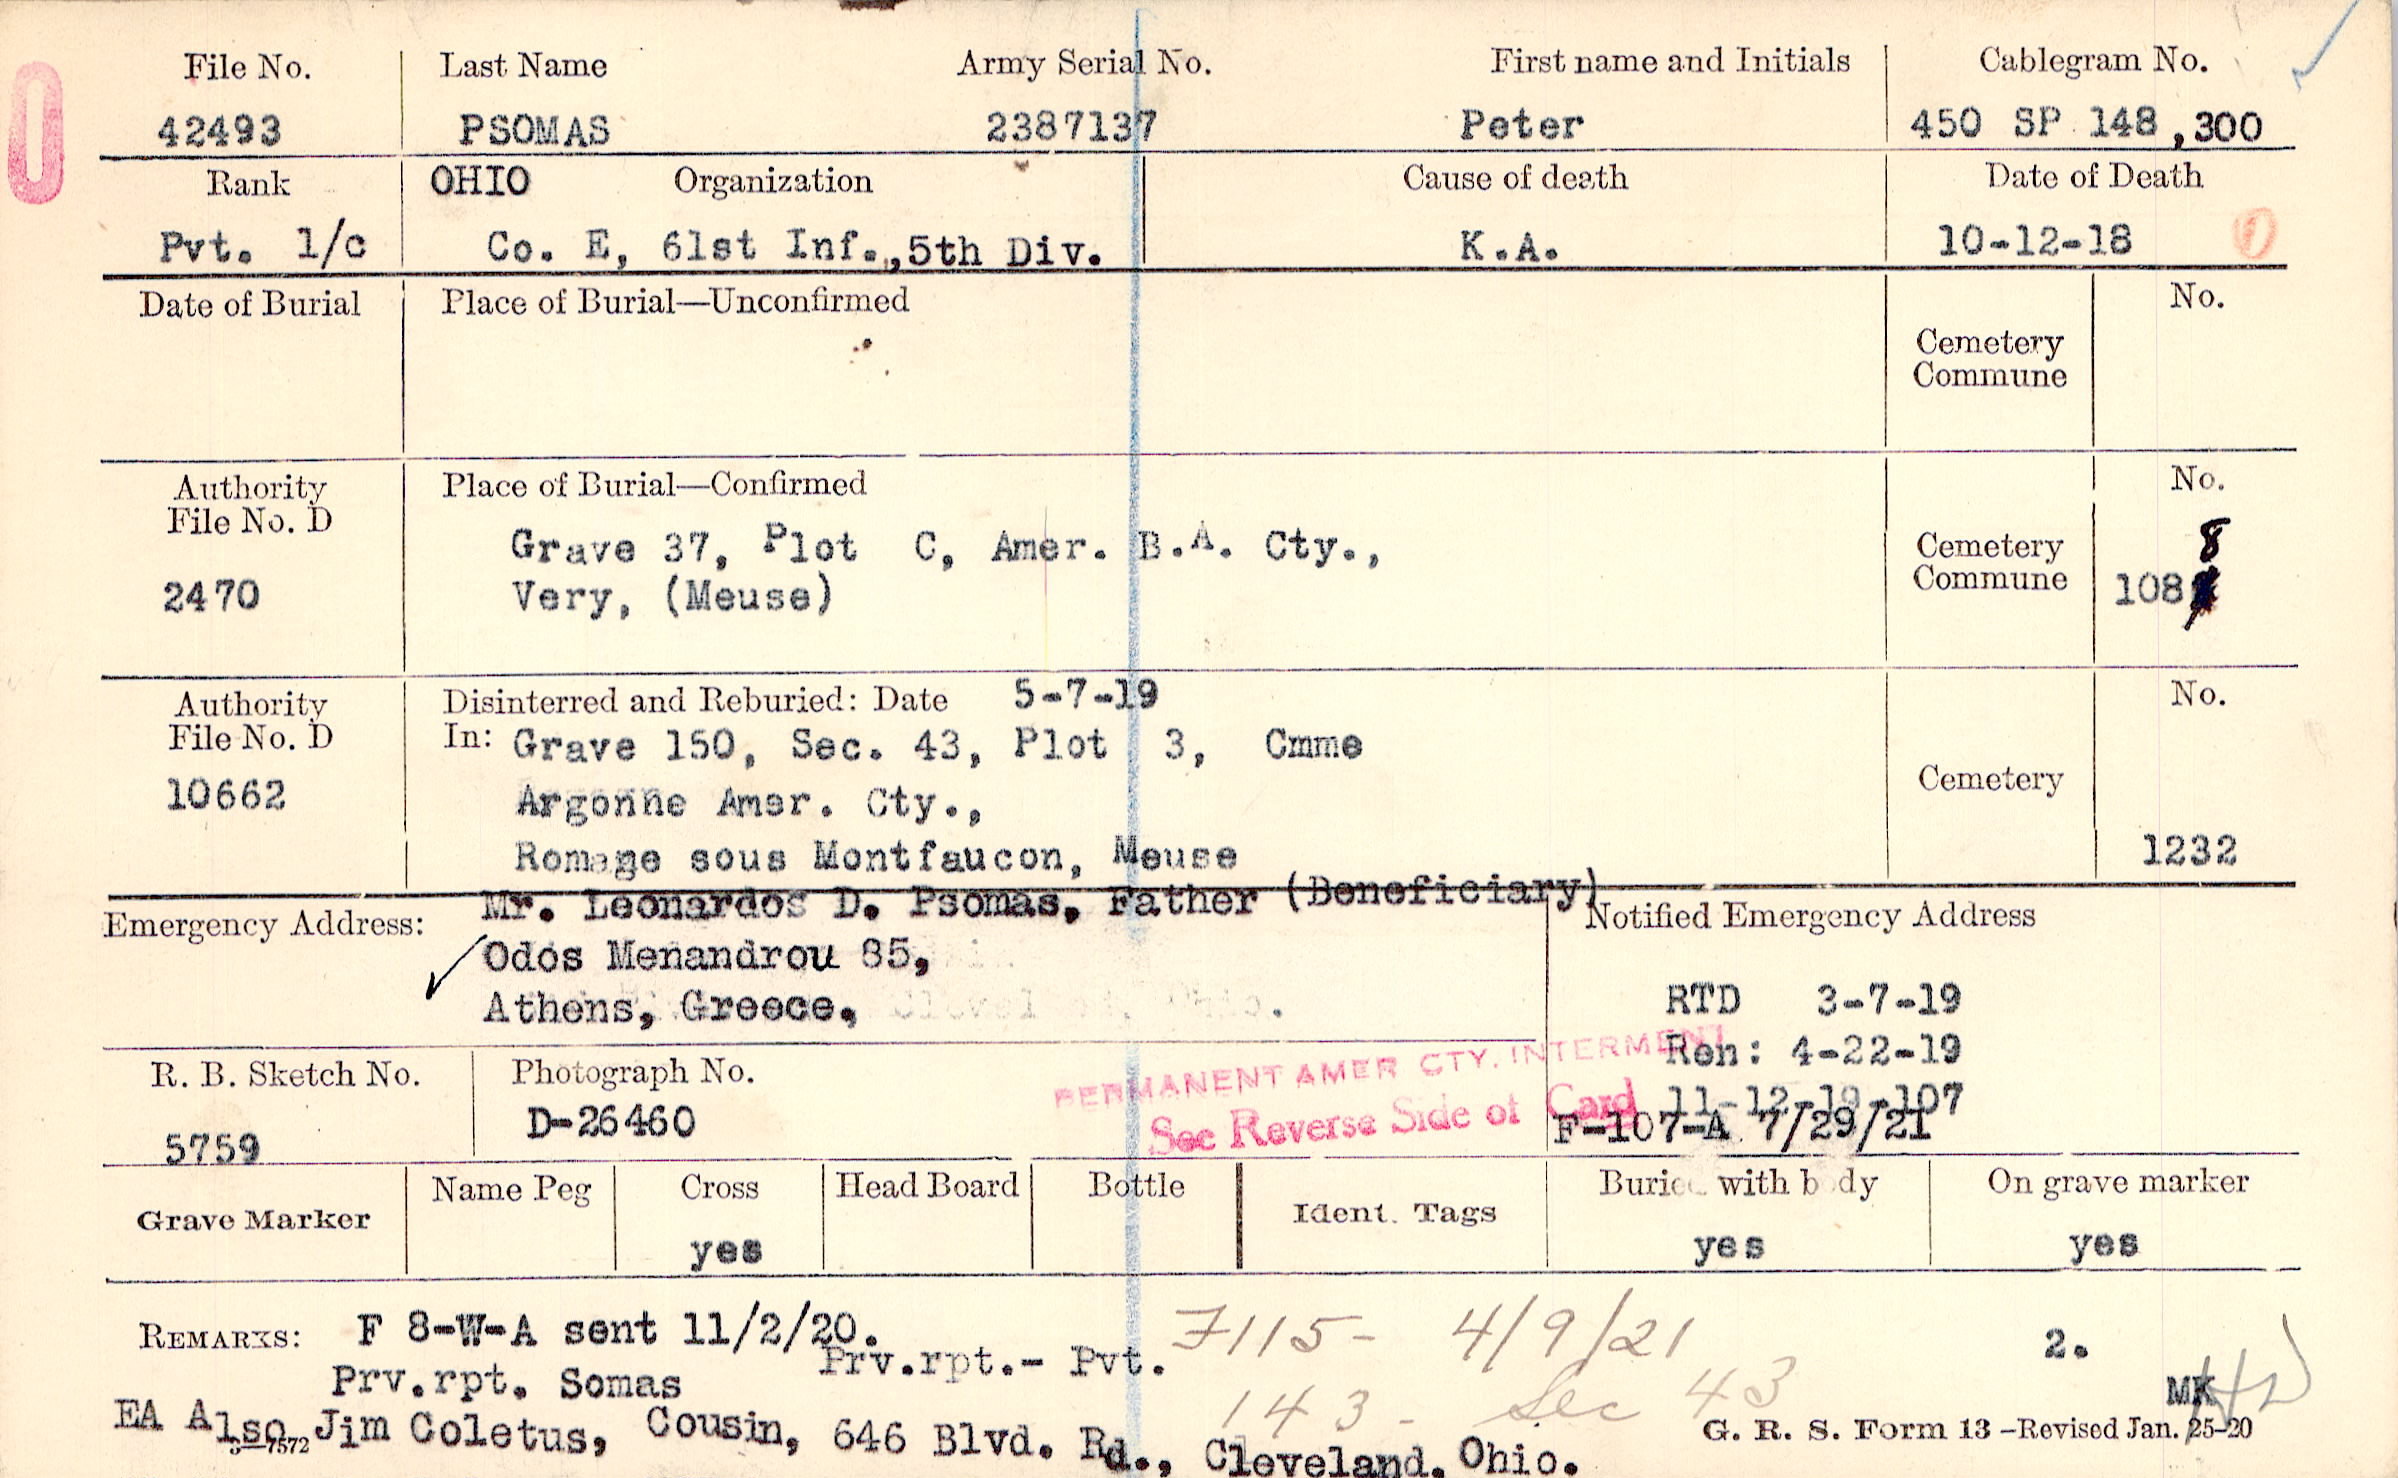 File No. Last Name Army Serial No. First name and Initials Cablegram No.
42493 PSOMAS 2387137 Peter 450 SP 148,300
Rank OHIO Organization Cause of death Date of Death
Pvt. 1/c Co. E, 61st Inf.,5th Div. K.A. 10-12-18
Date of Burial Place of Burial—Unconfirmed No.
Cemetery
Commune
Authority Place of Burial—Confirmed No.
File No. D
Grave 37, Plot C, Amer. B.A. Cty., Cemetery 8
2470 Very, (Meuse) Commune 108
Authority Disinterred and Reburied: Date 5-7-19 No.
File No. D In: Grave 150, Sec. 43, Plot 3, Cmme
10662 Argonne Amer. Cty., Cemetery
Romage sous Montfaucon, Meuse 1232
Emergency Address: Mr. Leonardos D. Psomas, Father (Beneficiary) Notified Emergency Address
Odos Menandrou 85,
Athens, Greece, RTD 3-7-19
Ren: 4-22-19
PERMANENT AMER CTY. INTERMENT
R. B. Sketch No. Photograph No. 11-12-19-107
See Reverse Side of Card
5759 D-26460 F-107-A 7/29/21
Grave Marker Name Peg Cross Head Board Bottle Ident. Tags Buried with body On grave marker
yes yes yes
REMARKS: F 8-W-A sent 11/2/20. F115- 4/9/21 2.
Prv.rpt.- Pvt.
Prv.rpt. Somas 143- Sec 43 MK
EA Also Jim Coletus, Cousin, 646 Blvd. Rd., Cleveland, Ohio.
3—7572 G. R. S. Form 13 -Revised Jan. 25-20